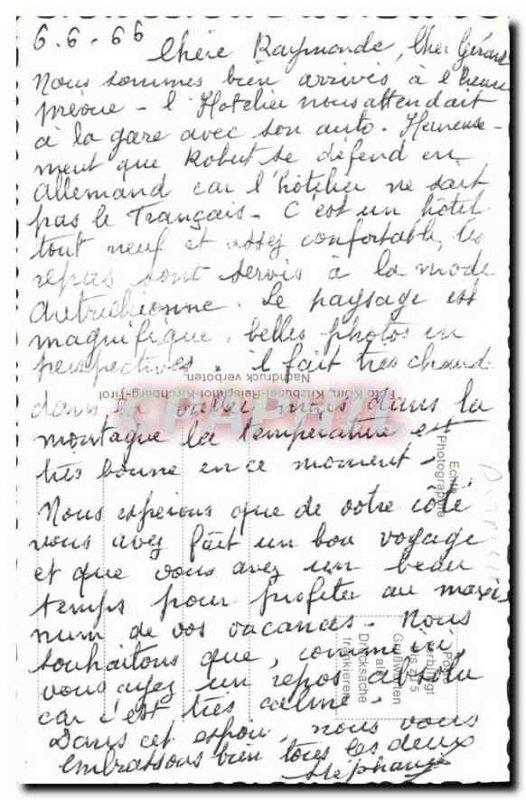 6.6.66
Chère Raymonde, Cher Gérard
Nous sommes bien arrivés à l'heure
prévue - l'Hotelier nous attendait
à la gare avec son auto. Heureuse-
ment que Robert se défend en
allemand car l'hôtelier ne sait
pas le Français - C'est un hôtel
tout neuf et assez confortable, les
repas sont servis à la mode
autrichienne. Le paysage est
magnifique, belles photos en
perspectives. il fait très chaud
dans la vallée, mais dans la
montagne la température est
très bonne en ce moment.
Nous espérons que de votre côté
vous avez fait un bon voyage
et que vous avez un beau
temps pour profiter au maxi
num de vos vacances. Nous
souhaitons que, comme ici,
vous ayez un repos absolu
car c'est très calme.
Dans cet espoir, nous vous
embrassons bien tous les deux
Stéphanie
Kitzbühel-Reischlhof-Kirchberg-Tirol
Nachdruck verboten.
Echte
Photographie
Post-
Grußworten
als
Drucksache
frankieren